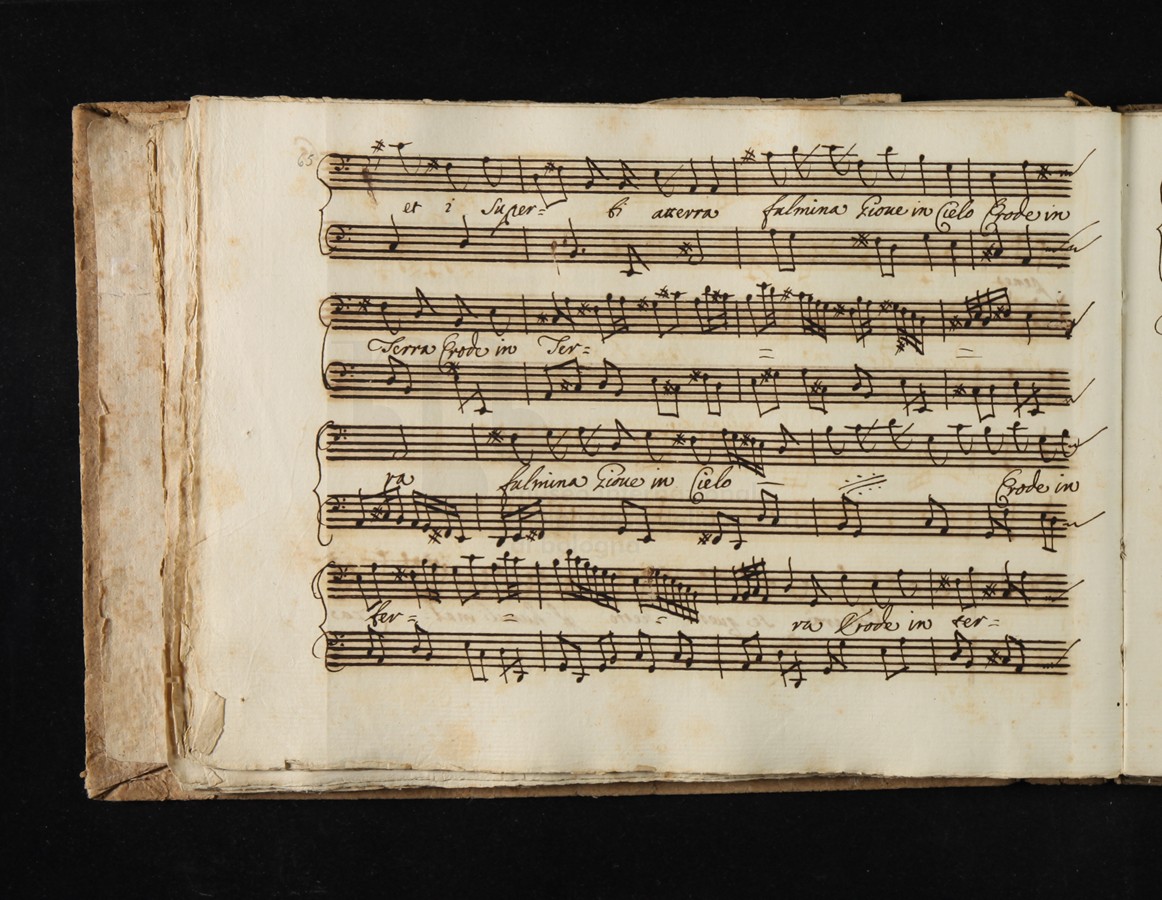 65
et i Super= bi atterra fulmina Gioue in Cielo Erode in
Terra Erode in Ter= = =
ra fulmina Gioue in Cielo = Erode in
ter= = = ra Erode in ter=